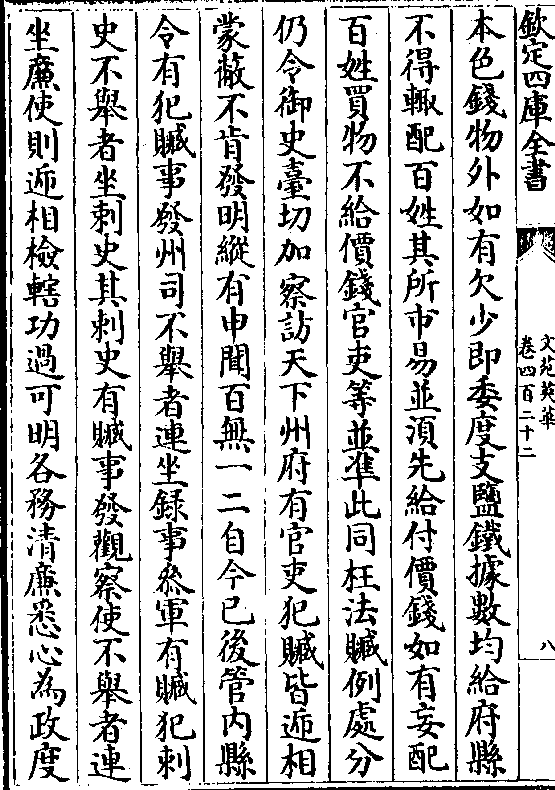 欽定四庫全書
文苑英華
卷四百二十二
八
本色錢物外如有欠少即委度支鹽鐵據數均給府縣
不得輙配百姓其所市易並湏先給付價錢如有妄配
百姓買物不給價錢官吏等並凖此同枉法贓例處分
仍令御史臺切加察訪天下州府有官吏犯贓皆逓相
蒙蔽不肯發明縱有申聞百無一二自今已後管内縣
令有犯贓事發州司不舉者連坐録事叅軍有贓犯刺
史不舉者坐刺史其刺史有贓事發觀察使不舉者連
坐廉使則逓相檢轄功過可明各務清廉悉心為政度